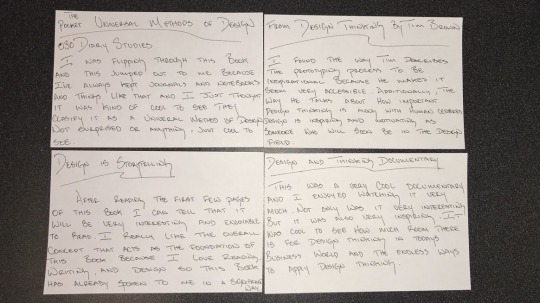 The
Pocket Universal Methods of Design
#30 Diary Studies
I was flipping through this book
and this jumped out to me because
I've always kept journals and notebooks
and things like that and I just thought
it was kind of cool to see they
classify it as a universal method of design
not surprised or anything, just cool to
see.
From Design Thinking By Tim Brown
I found the way Tim describes
the prototyping process to be
inspirational because he makes it
seem very accessible. Additionally, the
way he talks about how important
design thinking is along with human centered
design is inspiring and motivating as
someone who will soon be in the design
field.
Design is Storytelling
After reading the first few pages
of this book I can tell that it
will be very interesting and enjoyable
to read. I really like the overall
concept that acts as the foundation of
this book because I love reading,
writing, and design so this book
has already spoken to me in a
way.
Design and Thinking Documentary
This was a very cool documentary
and I enjoyed watching it very
much. Not only was it very interesting
but it was also very inspiring. It
was cool to see how much room there
is for design thinking in todays
business world and the endless ways
to apply design thinking.